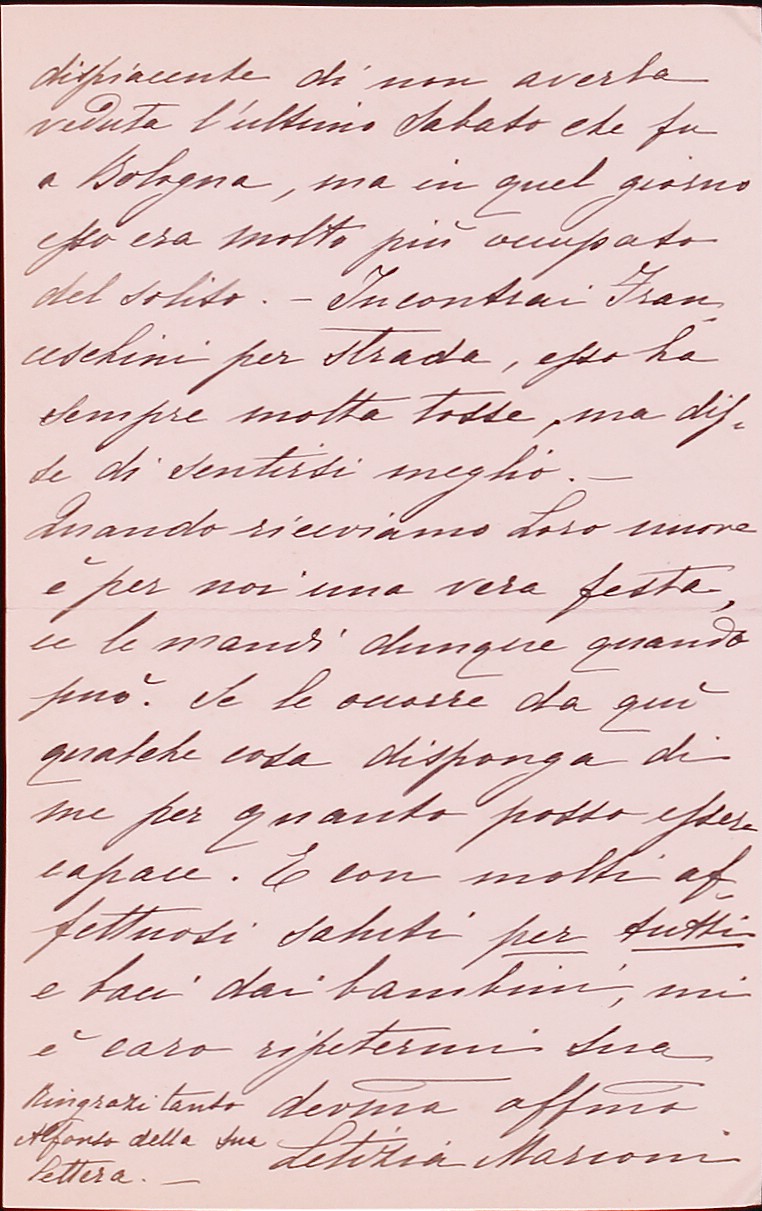 dispiacente di non averla
veduta l'ultimo Sabato che fu
a Bologna, ma in quel giorno
esso era molto più occupato
del solito. – Incontrai Fran=
ceschini per strada, esso ha
sempre molta tosse, ma dis=
se di sentirsi meglio. –
Quando riceviamo Loro nuove
è per noi una vera festa,
ce le mandi dunque quando
può. Se le occorre da quì
qualche cosa disponga di
me per quanto posso essere
capace. E con molti af=
fettuosi saluti per tutti
e baci dai bambini, mi
è caro ripetermi Sua
devma affmo
Letizia Marconi
Ringrazi tanto
Alfonso della sua
lettera. –